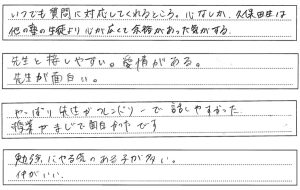 いつでも質問に対応してくれるところ。心なしか、久保田生は
他の塾の生徒より心が広くて余裕があった気がする。
先生と接しやすい。愛情がある。
先生が面白い。
やっぱり先生がフレンドリーで話しやすかった
授業がまじで面白かったです
勉強にやる気のある子が多い。
仲がいい。